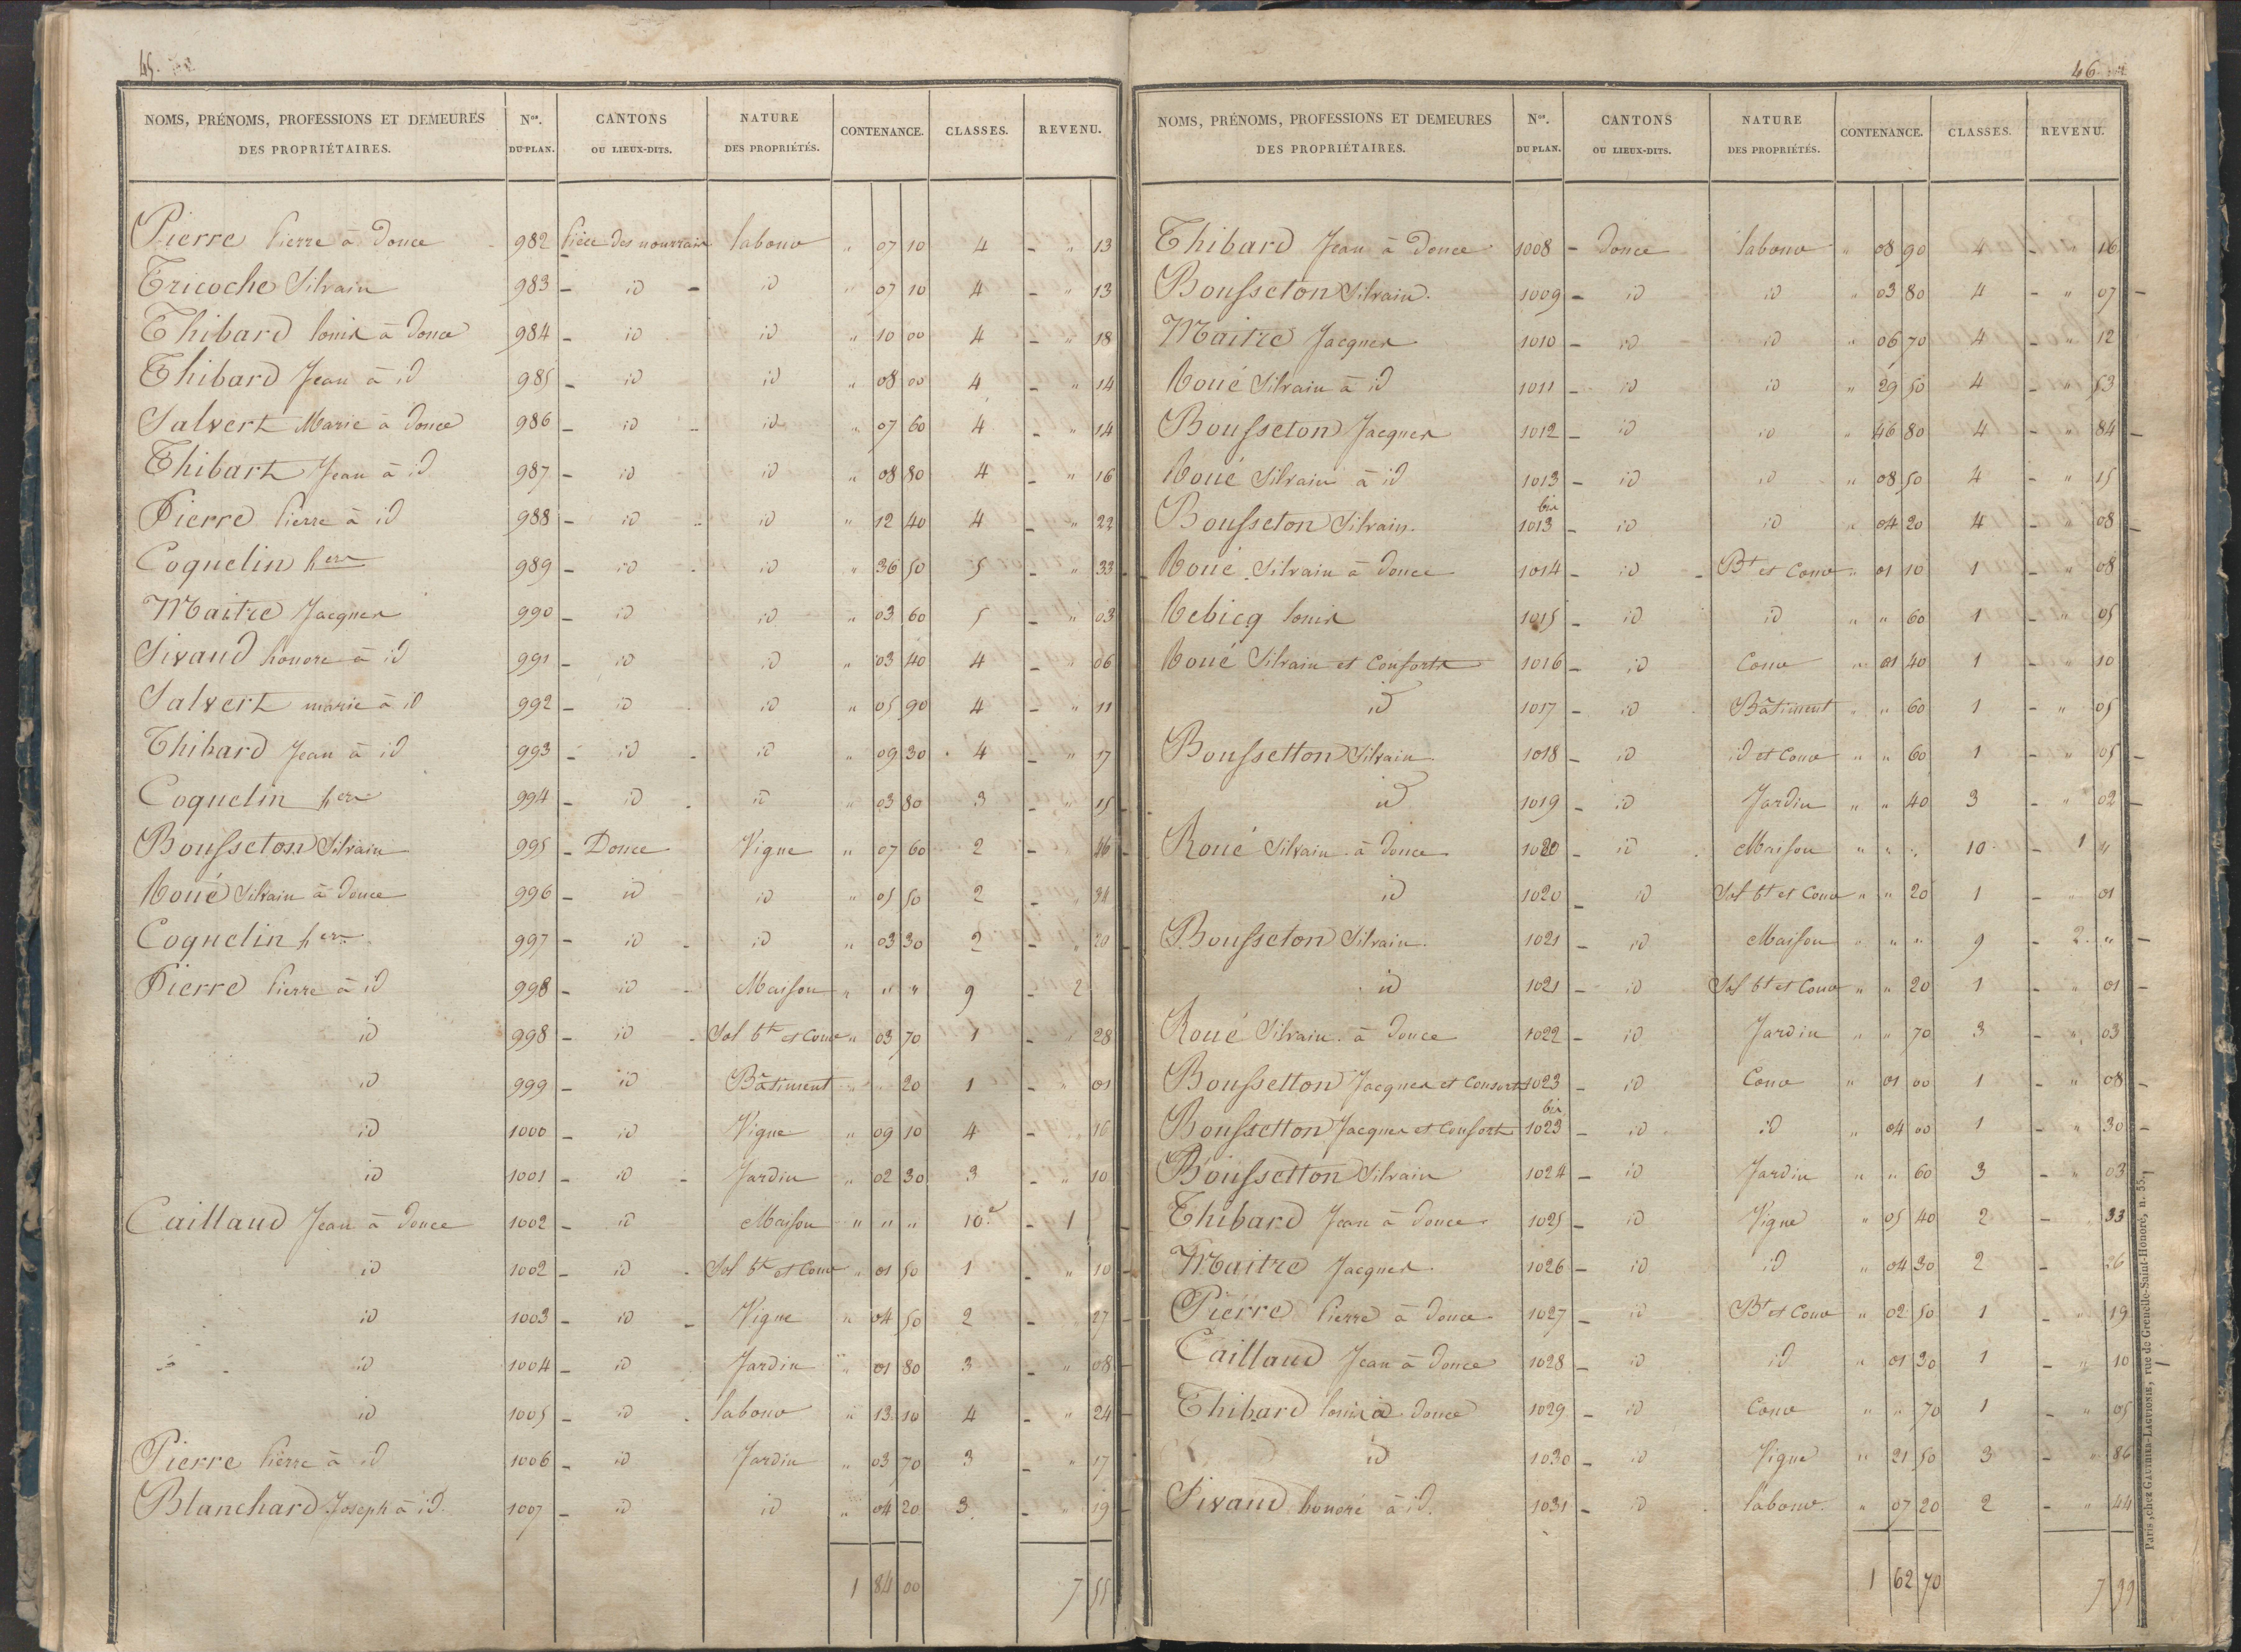 45.
NOMS, PRÉNOMS, PROFESSIONS ET DEMEURES DES PROPRIÉTAIRES. Nos. DU PLAN. CANTONS OU LIEUX-DITS. NATURE DES PROPRIÉTÉS. CONTENANCE. CLASSES. REVENU.
Pierre Pierre à Douce 982 Pièce des nourrain labour " 07 10 4 - " 13
Tricoche Silvain 983 - id - id " 07 10 4 - " 13
Thibard louis à Douce 984 - id id " 10 00 4 - " 18
Thibard Jean à id 985 - id id " 08 00 4 - " 14
Salvert Marie à Douce 986 - id - id " 07 60 4 - " 14
Thibart Jean à id 987 - id id " 08 80 4 - " 16
Pierre Pierre à id 988 - id id " 12 40 4 - " 22
Coquelin her 989 - id id " 36 50 5 - " 33
Maitre Jacques 990 - id id " 03 60 5 - " 03
Sivaud honore à id 991 - id id " 03 40 4 - " 06
Salvert marie à id 992 - id id " 05 90 4 - " 11
Thibard Jean à id 993 - id id " 09 30 4 - " 17
Coquelin her 994 - id id " 03 80 3 - " 15
Bousseton Silvain 995 - Douce Vigne " 07 60 2 - 46
Roué Silvain à douce 996 - id id " 05 50 2 - " 34
Coquelin her 997 - id - id " 03 30 2 - " 20
Pierre Pierre à id 998 - id - Maison " " " 9 - 2
id 998 - id - Sol bt et Cour " 03 70 1 - " 28
id 999 - id Bâtiment " " 20 1 - " 01
id 1000 - id Vigne " 09 10 4 - " 16
id 1001 - id - Jardin " 02 30 3 - " 10
Caillaud Jean à douce 1002 - id Maison " " " 10e - 1
id 1002 - id - Sol bt et Cour " 01 50 1 - " 10
id 1003 - id - Vigne " 04 50 2 - 27
id 1004 - id Jardin " 01 80 3 - " 08
id 1005 - id labour " 13 10 4 - " 24
Pierre Pierre à id 1006 - id Jardin " 03 70 3 - " 17
Blanchard Joseph à id 1007 - id id " 04 20 3 - " 19
1 84 00 7 55
46
NOMS, PRÉNOMS, PROFESSIONS ET DEMEURES DES PROPRIÉTAIRES. Nos. DU PLAN. CANTONS OU LIEUX-DITS. NATURE DES PROPRIÉTÉS. CONTENANCE. CLASSES. REVENU.
Thibard Jean à Douce 1008 - Douce labour " 08 90 4 - " 16
Bousseton Silvain 1009 - id id " 03 80 4 - " 07
Maitre Jacques 1010 - id id " 06 70 4 - " 12
Roué Silvain à id 1011 - id id " 29 50 4 - " 53
Bousseton Jacques 1012 - id id " 46 80 4 - " 84
Roué Silvain à id 1013 - id id " 08 50 4 - " 15
Bousseton Silvain 1013 bis - id id " 04 20 4 - " 08
Roué Silvain à douce 1014 - id - Bt et Cour " 01 10 1 - " 08
Rebicq louis 1015 - id id " " 60 1 - " 05
Roué Silvain et Consorts 1016 - id Cour " 01 40 1 - " 10
id 1017 - id Bâtiment " " 60 1 - " 05
Boussetton Silvain 1018 - id id et Cour " " 60 1 - " 05
id 1019 - id Jardin " " 40 3 - " 02
Roué Silvain à douce 1020 - id Maison " " " 10 - 1 "
id 1020 - id Sol bt et Cour " " 20 1 - " 01
Bousseton Silvain 1021 - id Maison " " " 9 - 2 "
id 1021 - id Sol bt et Cour " " 20 1 - " 01
Roué Silvain à douce 1022 - id Jardin " " 70 3 - " 03
Boussetton Jacques et Consorts 1023 - id Cour " 01 00 1 - " 08
Boussetton Jacques et Consorts 1023 bis - id id " 04 00 1 - " 30
Boussetton Silvain 1024 - id Jardin " " 60 3 - " 03
Thibard Jean à douce 1025 - id Vigne " 05 40 2 - 33
Maitre Jacques 1026 - id id " 04 30 2 - 26
Pierre Pierre à douce 1027 - id Bt et Cour " 02 50 1 - " 19
Caillaud Jean à douce 1028 - id id " 01 30 1 - " 10
Thibard louis à douce 1029 - id Cour " " 70 1 - " 05
id 1030 - id Vigne " 21 50 3 - " 86
Sivaud honoré à id. 1031 - id labour " 07 20 2 - " 44
1 62 70 7 99
Paris, chez GAUTHIER-LAGUIONIE, rue de Grenelle-Saint-Honoré, n. 55.